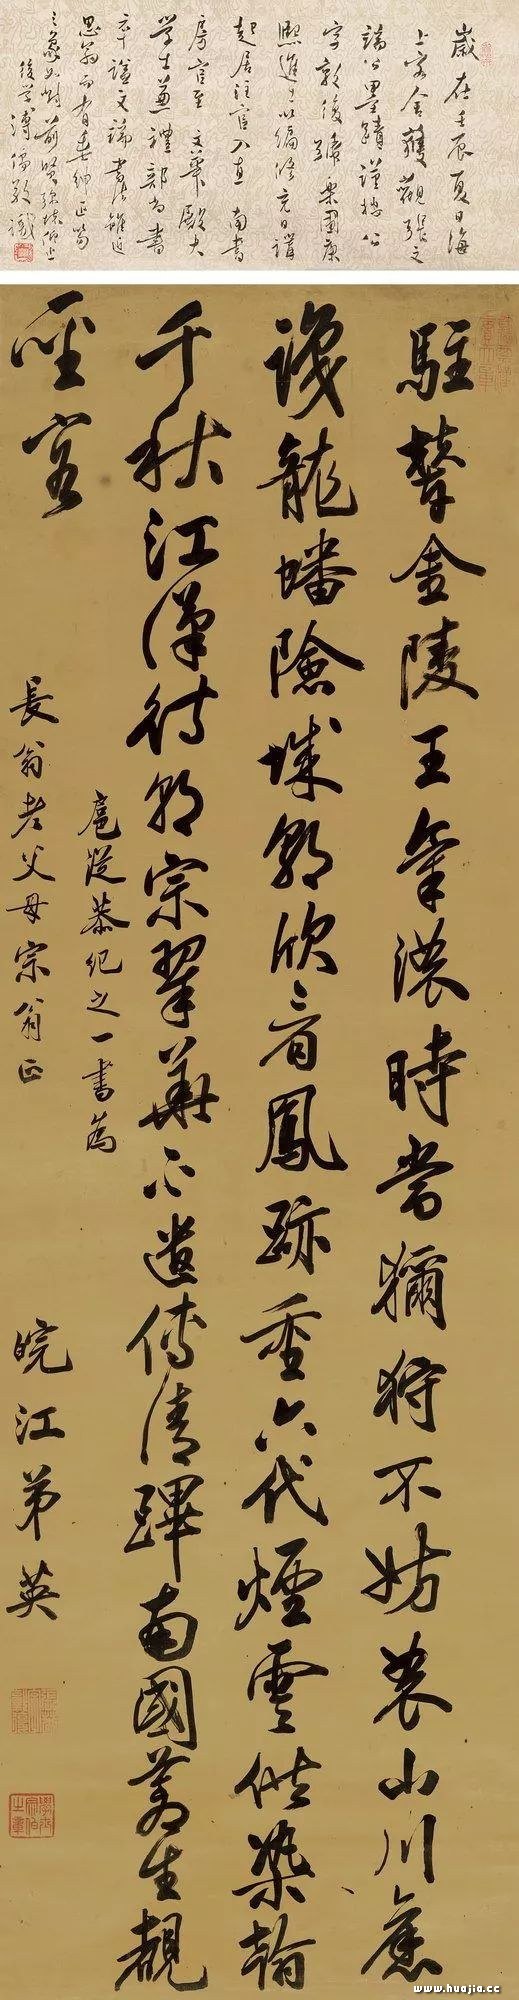 歲在壬辰夏日海
上寓舍獲觀張文
端公墨蹟謹按公
字敦復號樂圃康
熙進士以編修充日講
起居注官入直南書
房官至文華殿大
學士兼禮部尚書
卒謚文端書法雖近
思翁而有垂紳正笏
之象如對前賢彌堪仰止
後學溥儒敬識
駐輦金陵王氣濃時當獮狩不妨農山川舊
識龍蟠險城郭欣看鳳跡重六代煙雲供染翰
千秋江漢待朝宗翠華不遣傳清蹕南國蒼生覩
聖容
扈從恭紀之一書為
長翁老父母宗翁正
皖江弟英
www.huajia.cc